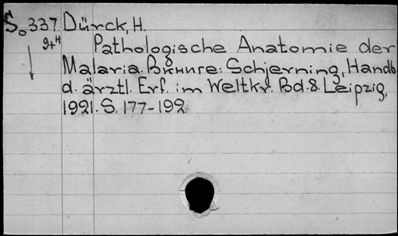 S₀337. Dürck, H.
9+H Pathologische Anatomie der
Malaria. Вкниге: Schjerning, Handb.
d. ärztl. Erf. im Weltkr. Bd. 8. Leipzig,
1921. S. 177-192.